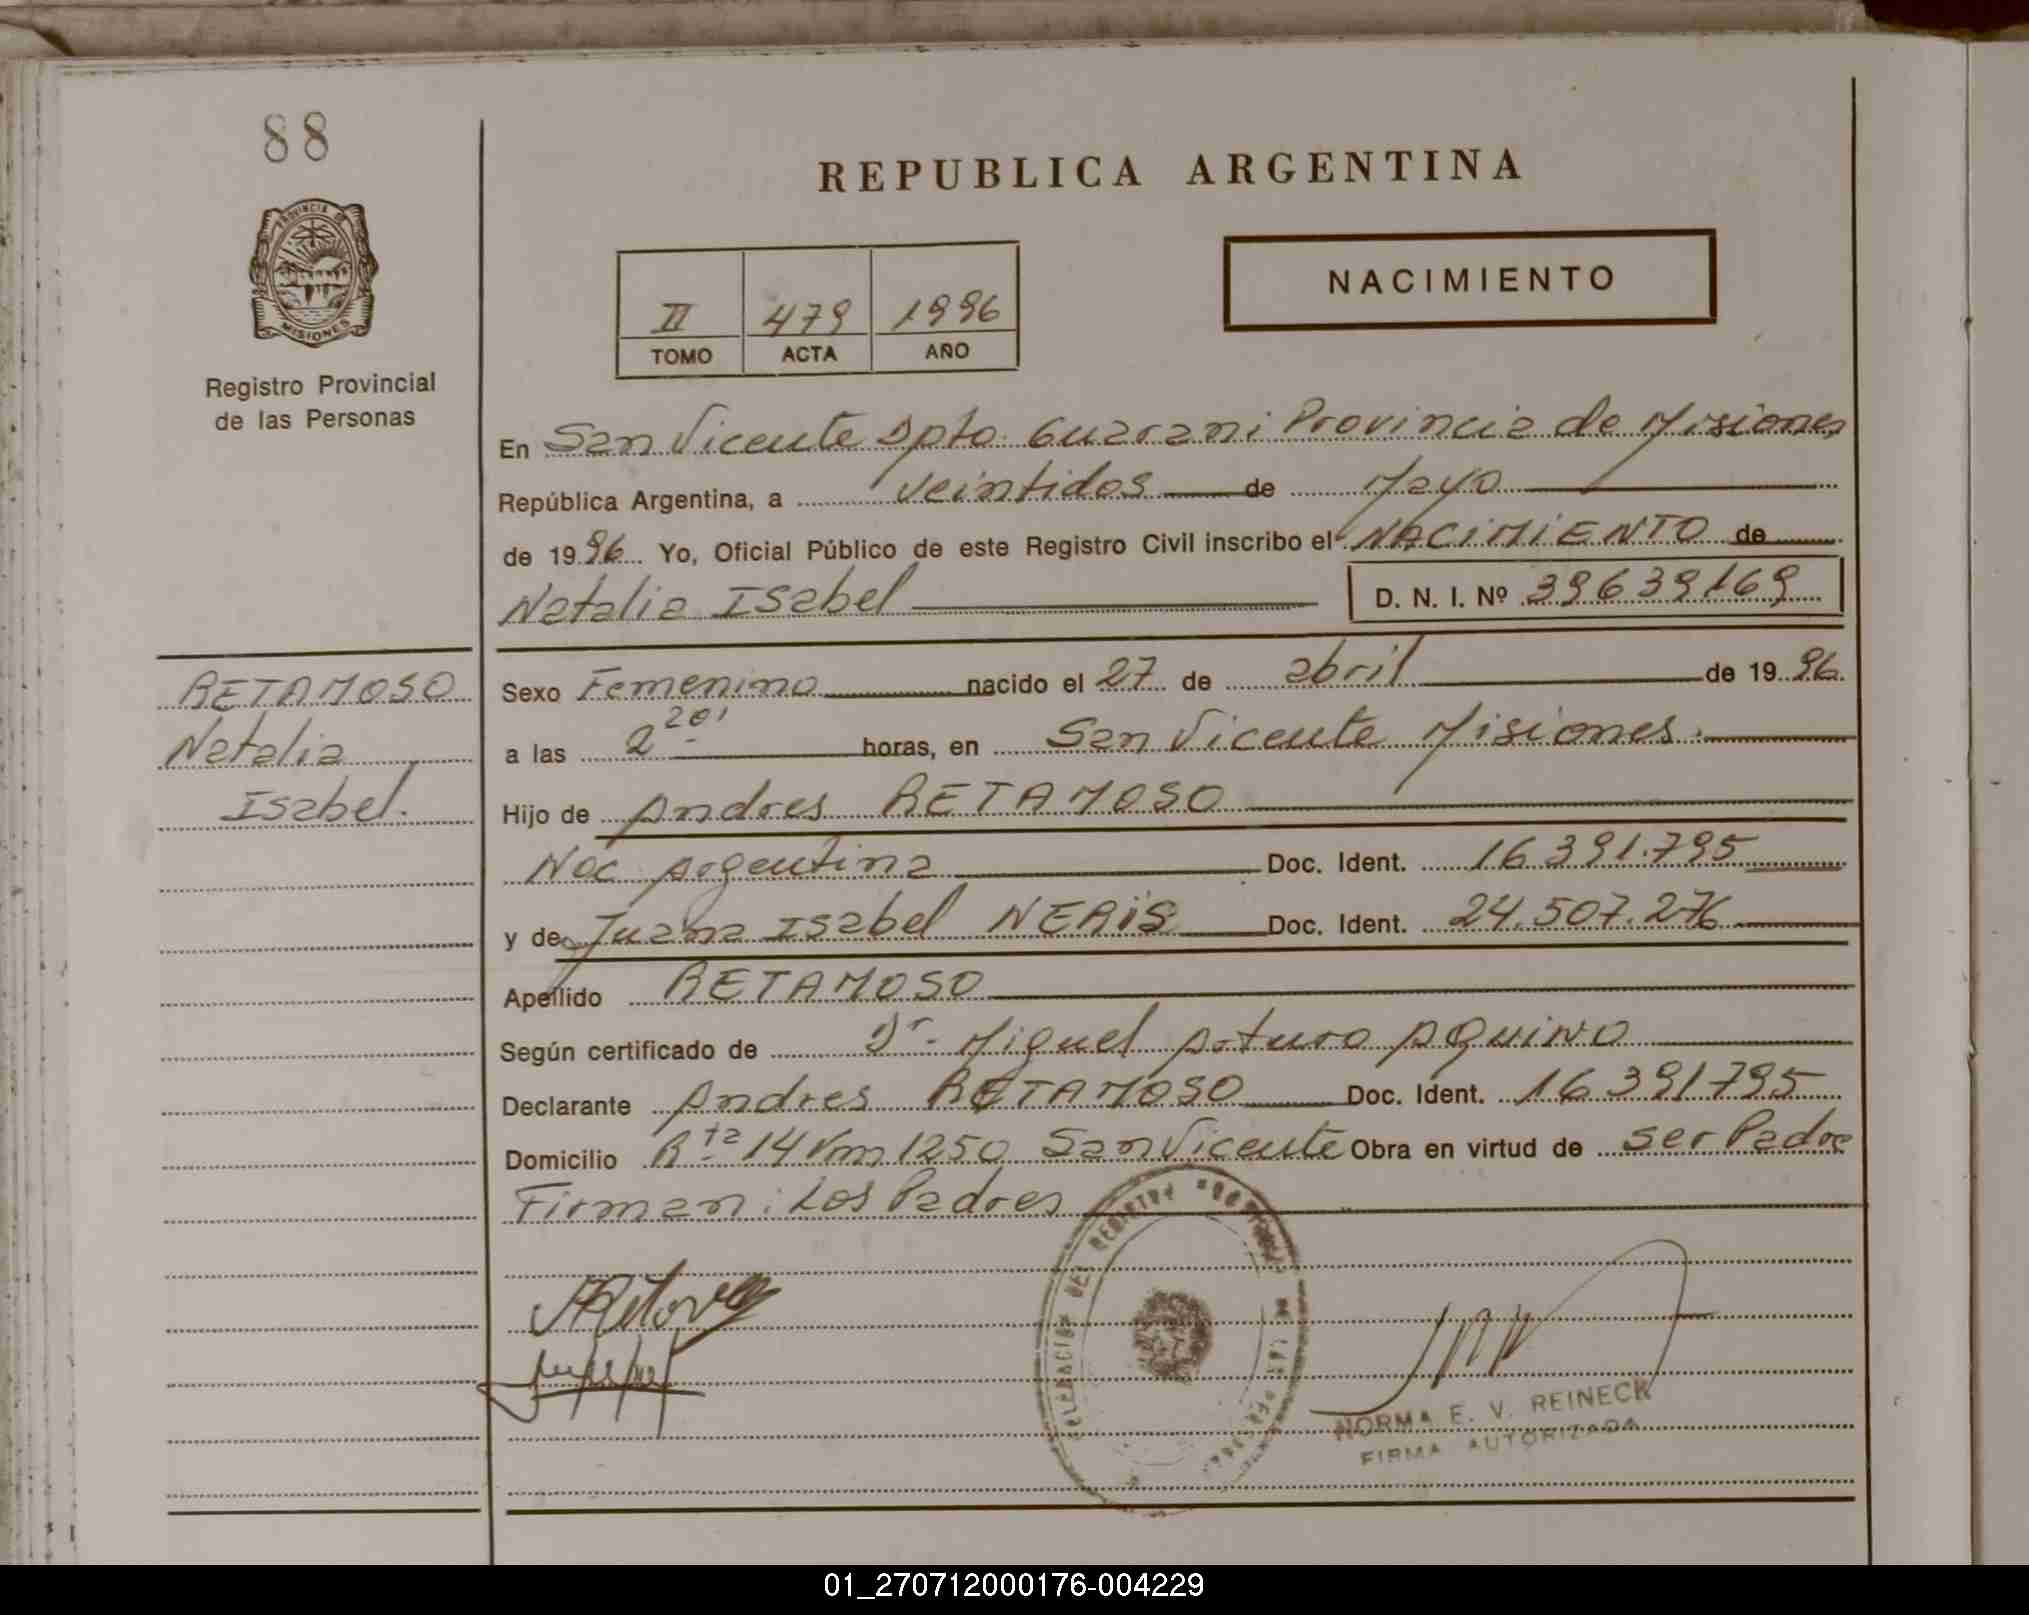 88
PROVINCIA DE
MISIONES
Registro Provincial
de las Personas
REPUBLICA ARGENTINA
II 479 1996
TOMO ACTA AÑO
NACIMIENTO
En San Vicente Dpto. Guarani Provincia de Misiones
República Argentina, a veintidos de Mayo
de 1996 Yo, Oficial Público de este Registro Civil inscribo el NACIMIENTO de
Natalia Isabel D. N. I. Nº 39639169
RETAMOSO
Natalia
Isabel.
Sexo Femenino nacido el 27 de abril de 1996.
a las 2 20' horas, en San Vicente Misiones.
Hijo de Andres RETAMOSO
Nac Argentina Doc. Ident. 16391.795
y de Juana Isabel NERIS Doc. Ident. 24.507.276
Apellido RETAMOSO
Según certificado de Dr. Miguel Arturo AQUINO
Declarante Andres RETAMOSO Doc. Ident. 16391795
Domicilio Rta 14 Km 1250 San Vicente Obra en virtud de ser Padre
Firman: Los Padres
DEL REGISTRO
NORMA E. V. REINECK
FIRMA AUTORIZADA
01_270712000176-004229